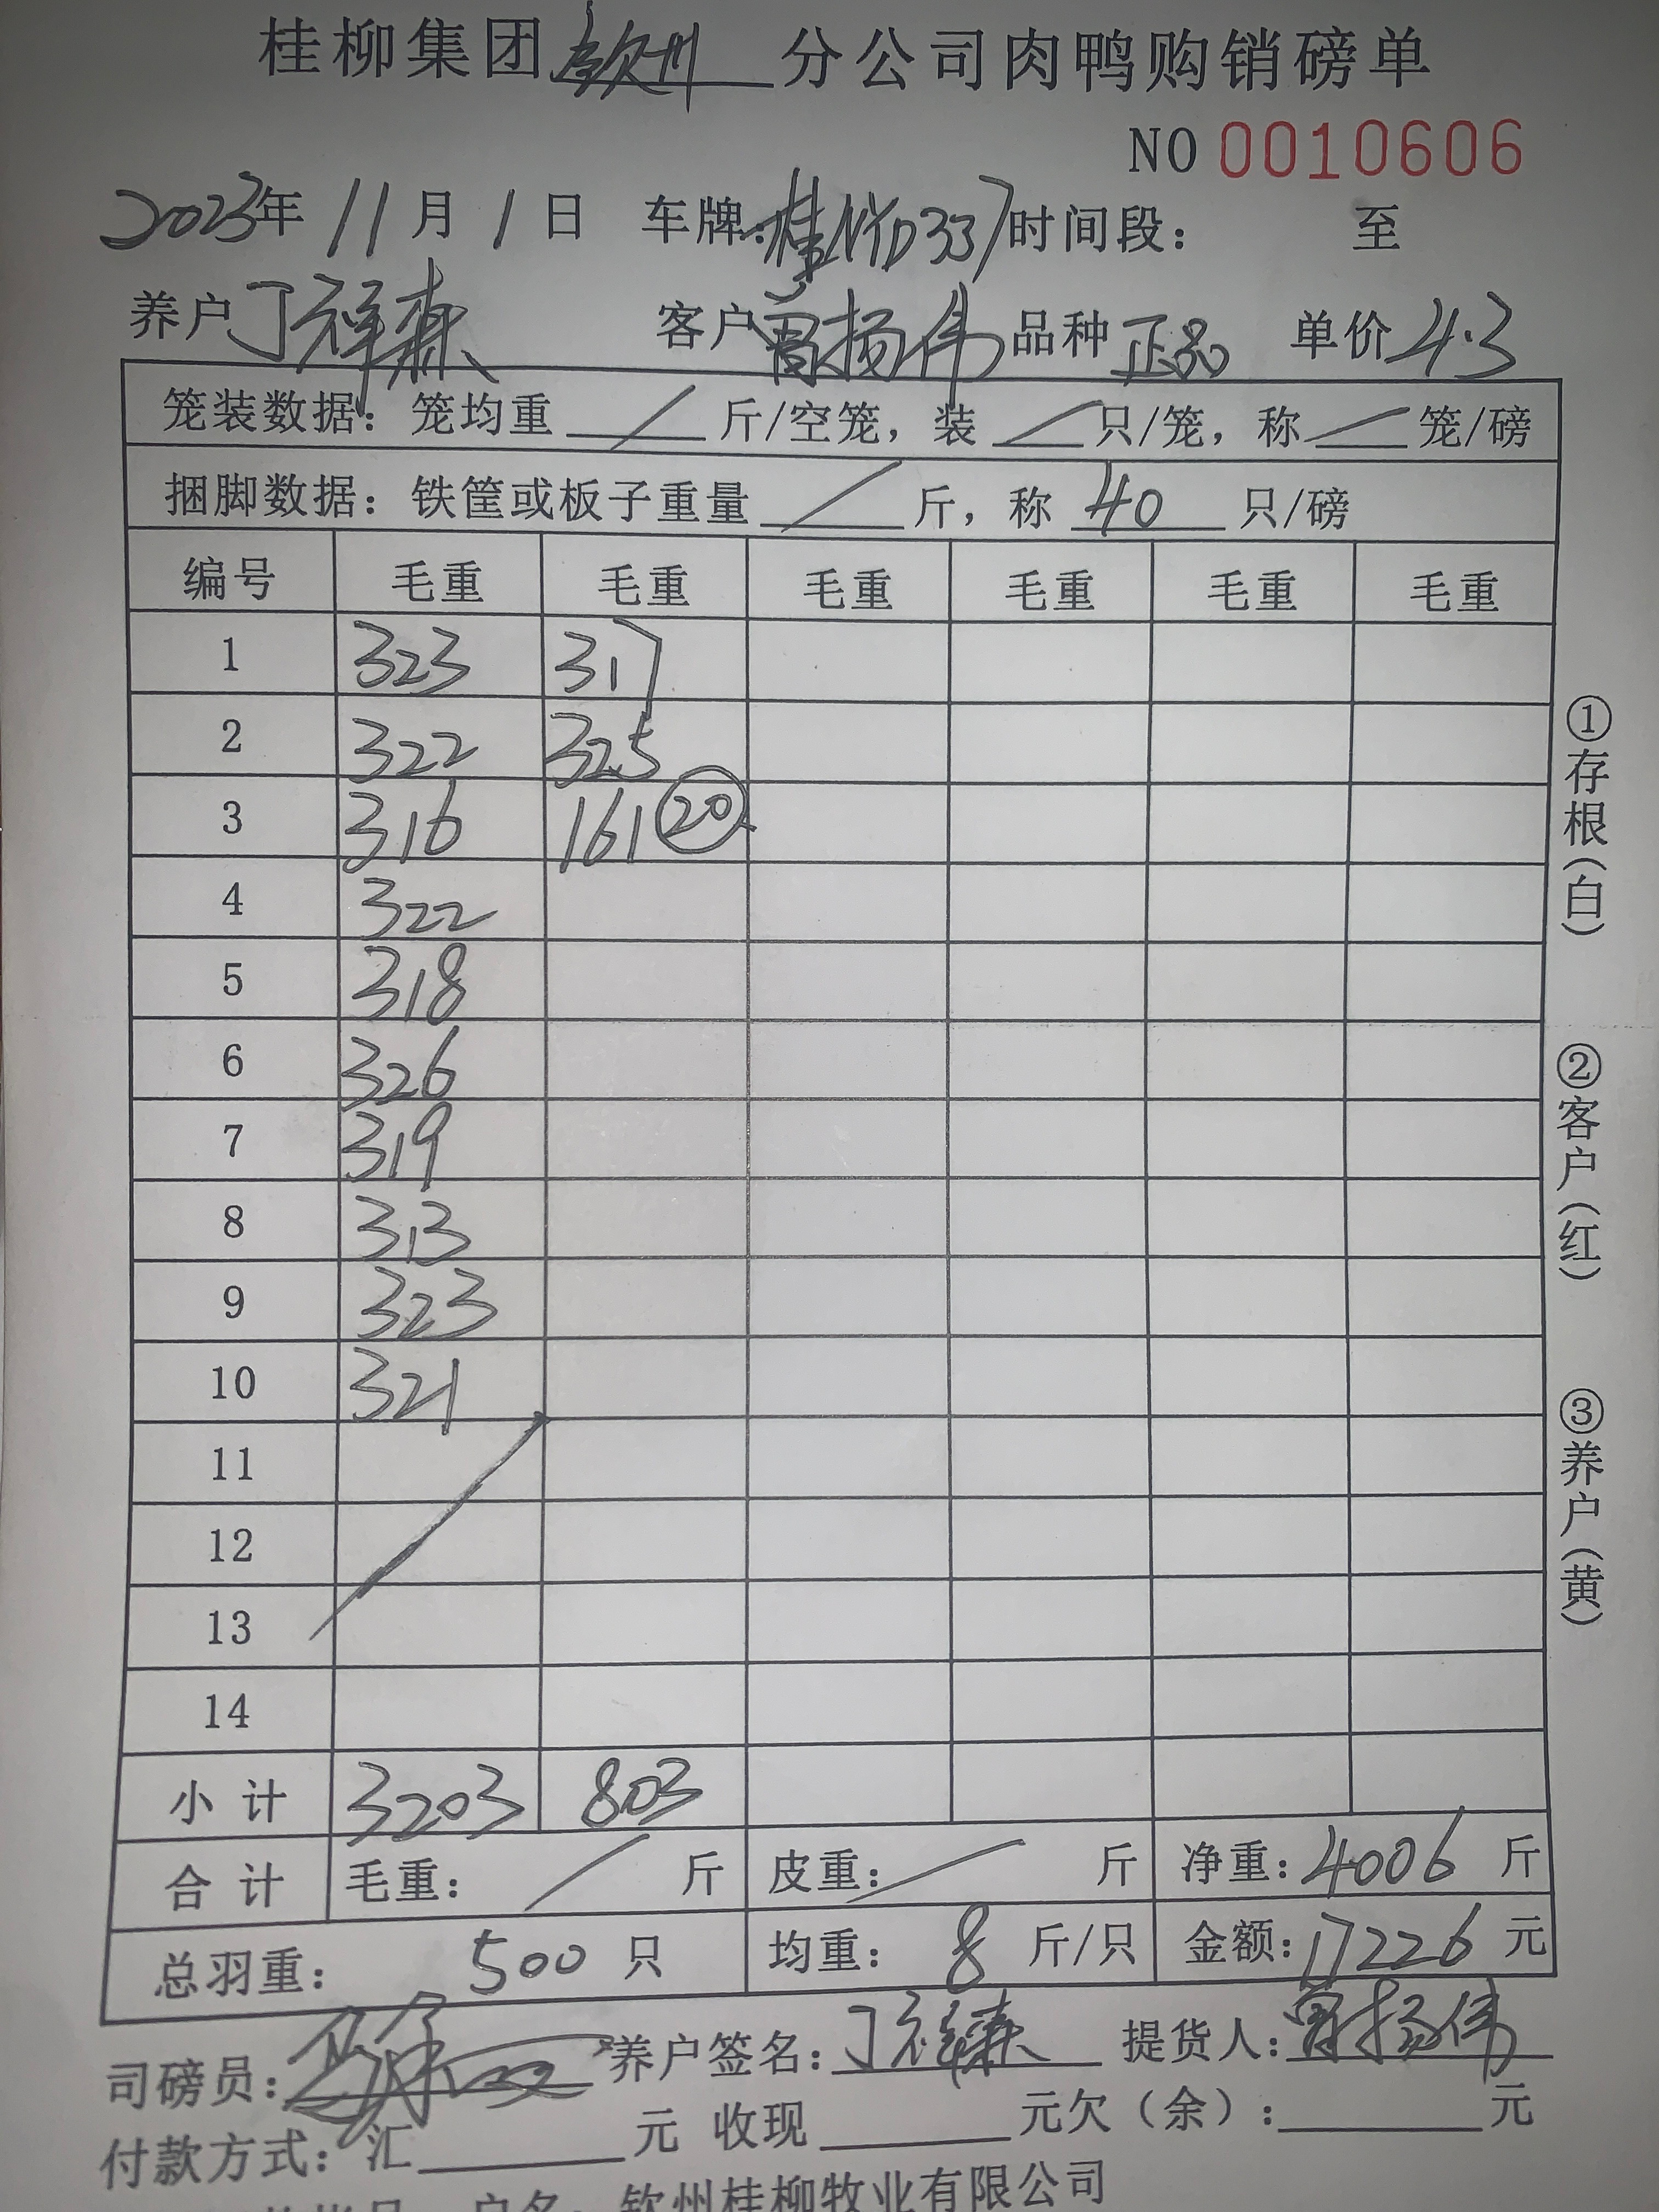 桂柳集团钦州分公司肉鸭购销磅单
NO 0010606
2023年 11月 1日 车牌: 时间段: 至
养户 丁祥森 客户 曾扬伟 品种 正品 单价 4.3
笼装数据: 笼均重 / 斤/空笼, 装 / 只/笼, 称 / 笼/磅
捆脚数据: 铁筐或板子重量 / 斤, 称 40 只/磅
编号 毛重 毛重 毛重 毛重 毛重 毛重
1 323 317
2 322 325
3 316 161 ⑳
4 322
5 318
6 326
7 319
8 313
9 323
10 321
11
12
13
14
小计 3203 803
合计 毛重: / 斤 皮重: / 斤 净重: 4006 斤
总羽重: 500 只 均重: 8 斤/只 金额: 17226 元
司磅员: 养户签名: 丁祥森 提货人: 曾扬伟
付款方式: 汇 元 收现 元欠(余): 元
户名: 钦州桂柳牧业有限公司
①存根(白)
②客户(红)
③养户(黄)